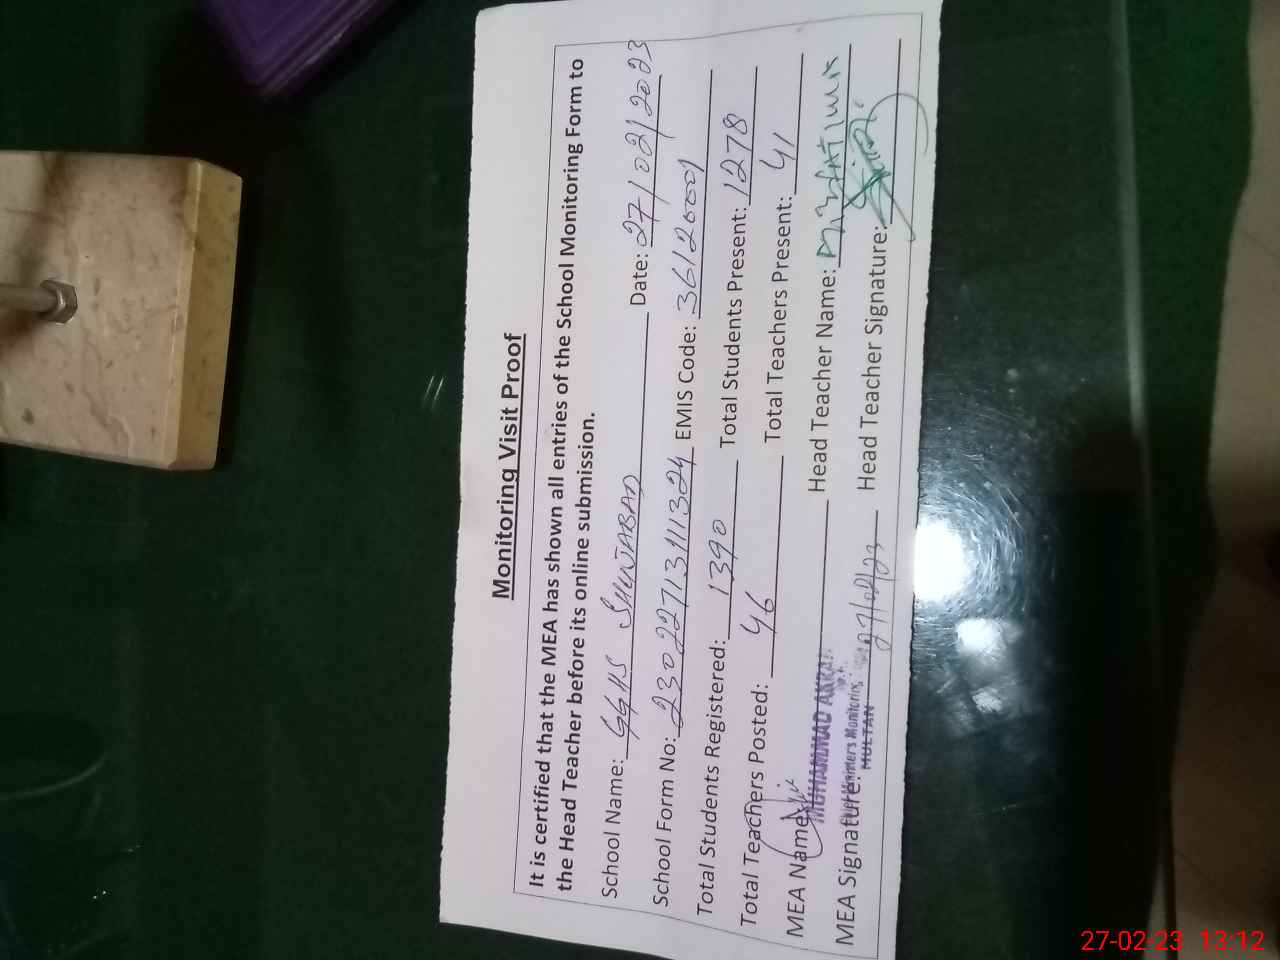 Monitoring Visit Proof
It is certified that the MEA has shown all entries of the School Monitoring Form to
the Head Teacher before its online submission.
School Name: GGHS SHUJABAD Date: 27/02/2023
School Form No: 230227131111324 EMIS Code: 36120001
Total Students Registered: 1390 Total Students Present: 1278
Total Teachers Posted: 46 Total Teachers Present: 41
MEA Name: MUHAMMAD Head Teacher Name:
MEA Signature: Monitoring 27/02/23 Head Teacher Signature:
MULTAN
27-02-23 13:12